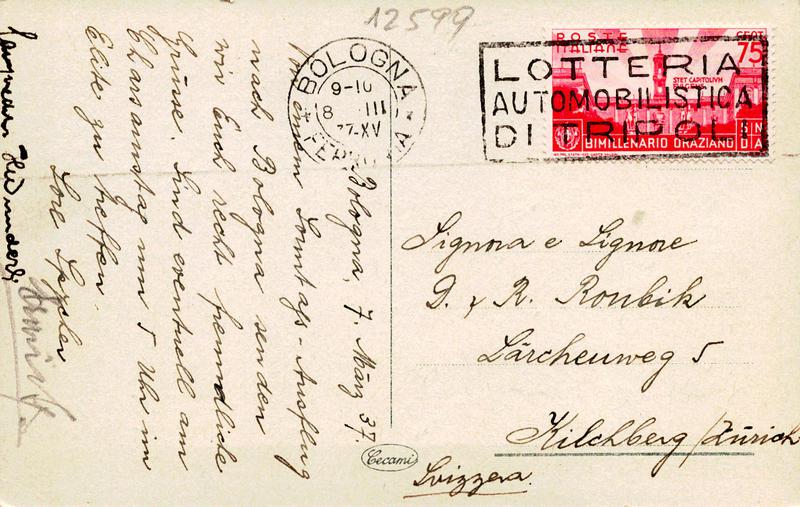 12599
BOLOGNA
9-10
8 III
37-XV
FERROVIA
LOTTERIA
AUTOMOBILISTICA
DI TRIPOLI
POSTE
ITALIANE
CENT
75
STET CAPITOLIUM
FULGENS
BIMILLENARIO ORAZIANO
Bologna, 7. März 37.
Von einem Sonntags-Ausflug
nach Bologna senden
wir Euch recht freundliche
Grüsse. Sind eventuell am
Charsamstag um 5 Uhr im
Elite zu treffen.
Lore Spycher
Signora e Signore
D. & R. Roubik
Lärchenweg 5
Kilchberg/Zürich
Svizzera.
Cecami